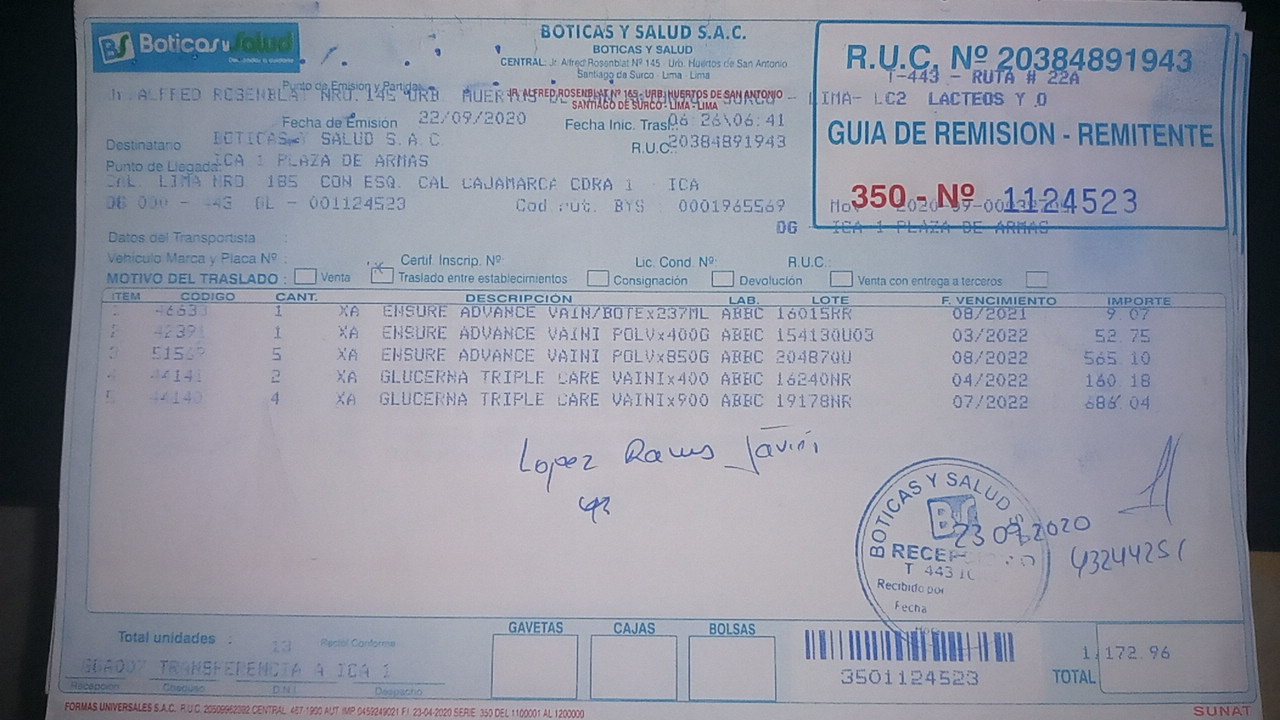 Boticas y Salud
BOTICAS Y SALUD S.A.C.
BOTICAS Y SALUD
CENTRAL: Jr. Alfred Rosenblat Nº 145 - Urb. Huertos de San Antonio
Santiago de Surco - Lima - Lima
R.U.C. Nº 20384891943
T-443 - RUTA # 22A
Punto de Emisión y Partida
Jr. ALFRED ROSENBLAT NRO. 145 URB
JR. ALFRED ROSENBLAT Nº 165 - URB. HUERTOS DE SAN ANTONIO
SANTIAGO DE SURCO - LIMA - LIMA
LIMA- LC2 LACTEOS Y O
Fecha de Emisión 22/09/2020 Fecha Inic. Trasl. 06:26\06:41
GUIA DE REMISION - REMITENTE
Destinatario BOTICAS Y SALUD S.A.C. R.U.C. 20384891943
Punto de Llegada: ICA 1 PLAZA DE ARMAS
CAL. LIMA NRO 185 CON ESQ. CAL CAJAMARCA CDRA 1 ICA
443 BL - 001124523 BYS 0001965569
350 - Nº 1124523
OG - ICA 1 PLAZA DE ARMAS
Datos del Transportista :
Vehículo Marca y Placa Nº : Certif. Inscrip. Nº Lic. Cond. Nº R.U.C.:
MOTIVO DEL TRASLADO : Venta x Traslado entre establecimientos Consignación Devolución Venta con entrega a terceros
ITEM CODIGO CANT. DESCRIPCIÓN LAB. LOTE F. VENCIMIENTO IMPORTE
1 46633 1 XA ENSURE ADVANCE VAIN/BOTEx237ML ABBC 16015RR 08/2021 9.07
2 42391 1 XA ENSURE ADVANCE VAINI POLVx400G ABBC 15413QU03 03/2022 52.75
3 51567 5 XA ENSURE ADVANCE VAINI POLVx850G ABBC 20487QU 08/2022 565.10
4 44141 2 XA GLUCERNA TRIPLE CARE VAINIx400 ABBC 16240NR 04/2022 160.18
5 44140 4 XA GLUCERNA TRIPLE CARE VAINIx900 ABBC 19178NR 07/2022 686.04
Lopez Ramos Javier
BOTICAS Y SALUD S
BS
23 09 2020
RECEP
T 443
43244251
Recibido por
Fecha
Total unidades : 13 Recibí Conforme
TRANSFERENCIA A ICA 1
Recepción Chequeo D.N.I. Despacho
GAVETAS CAJAS BOLSAS
3501124523
TOTAL 1,172.96
FORMAS UNIVERSALES S.A.C. R.U.C. 20509962392 CENTRAL: 467 1900 AUT IMP 0459249021 F.I. 23-04-2020 SERIE: 350 DEL 1100001 AL 1200000
SUNAT